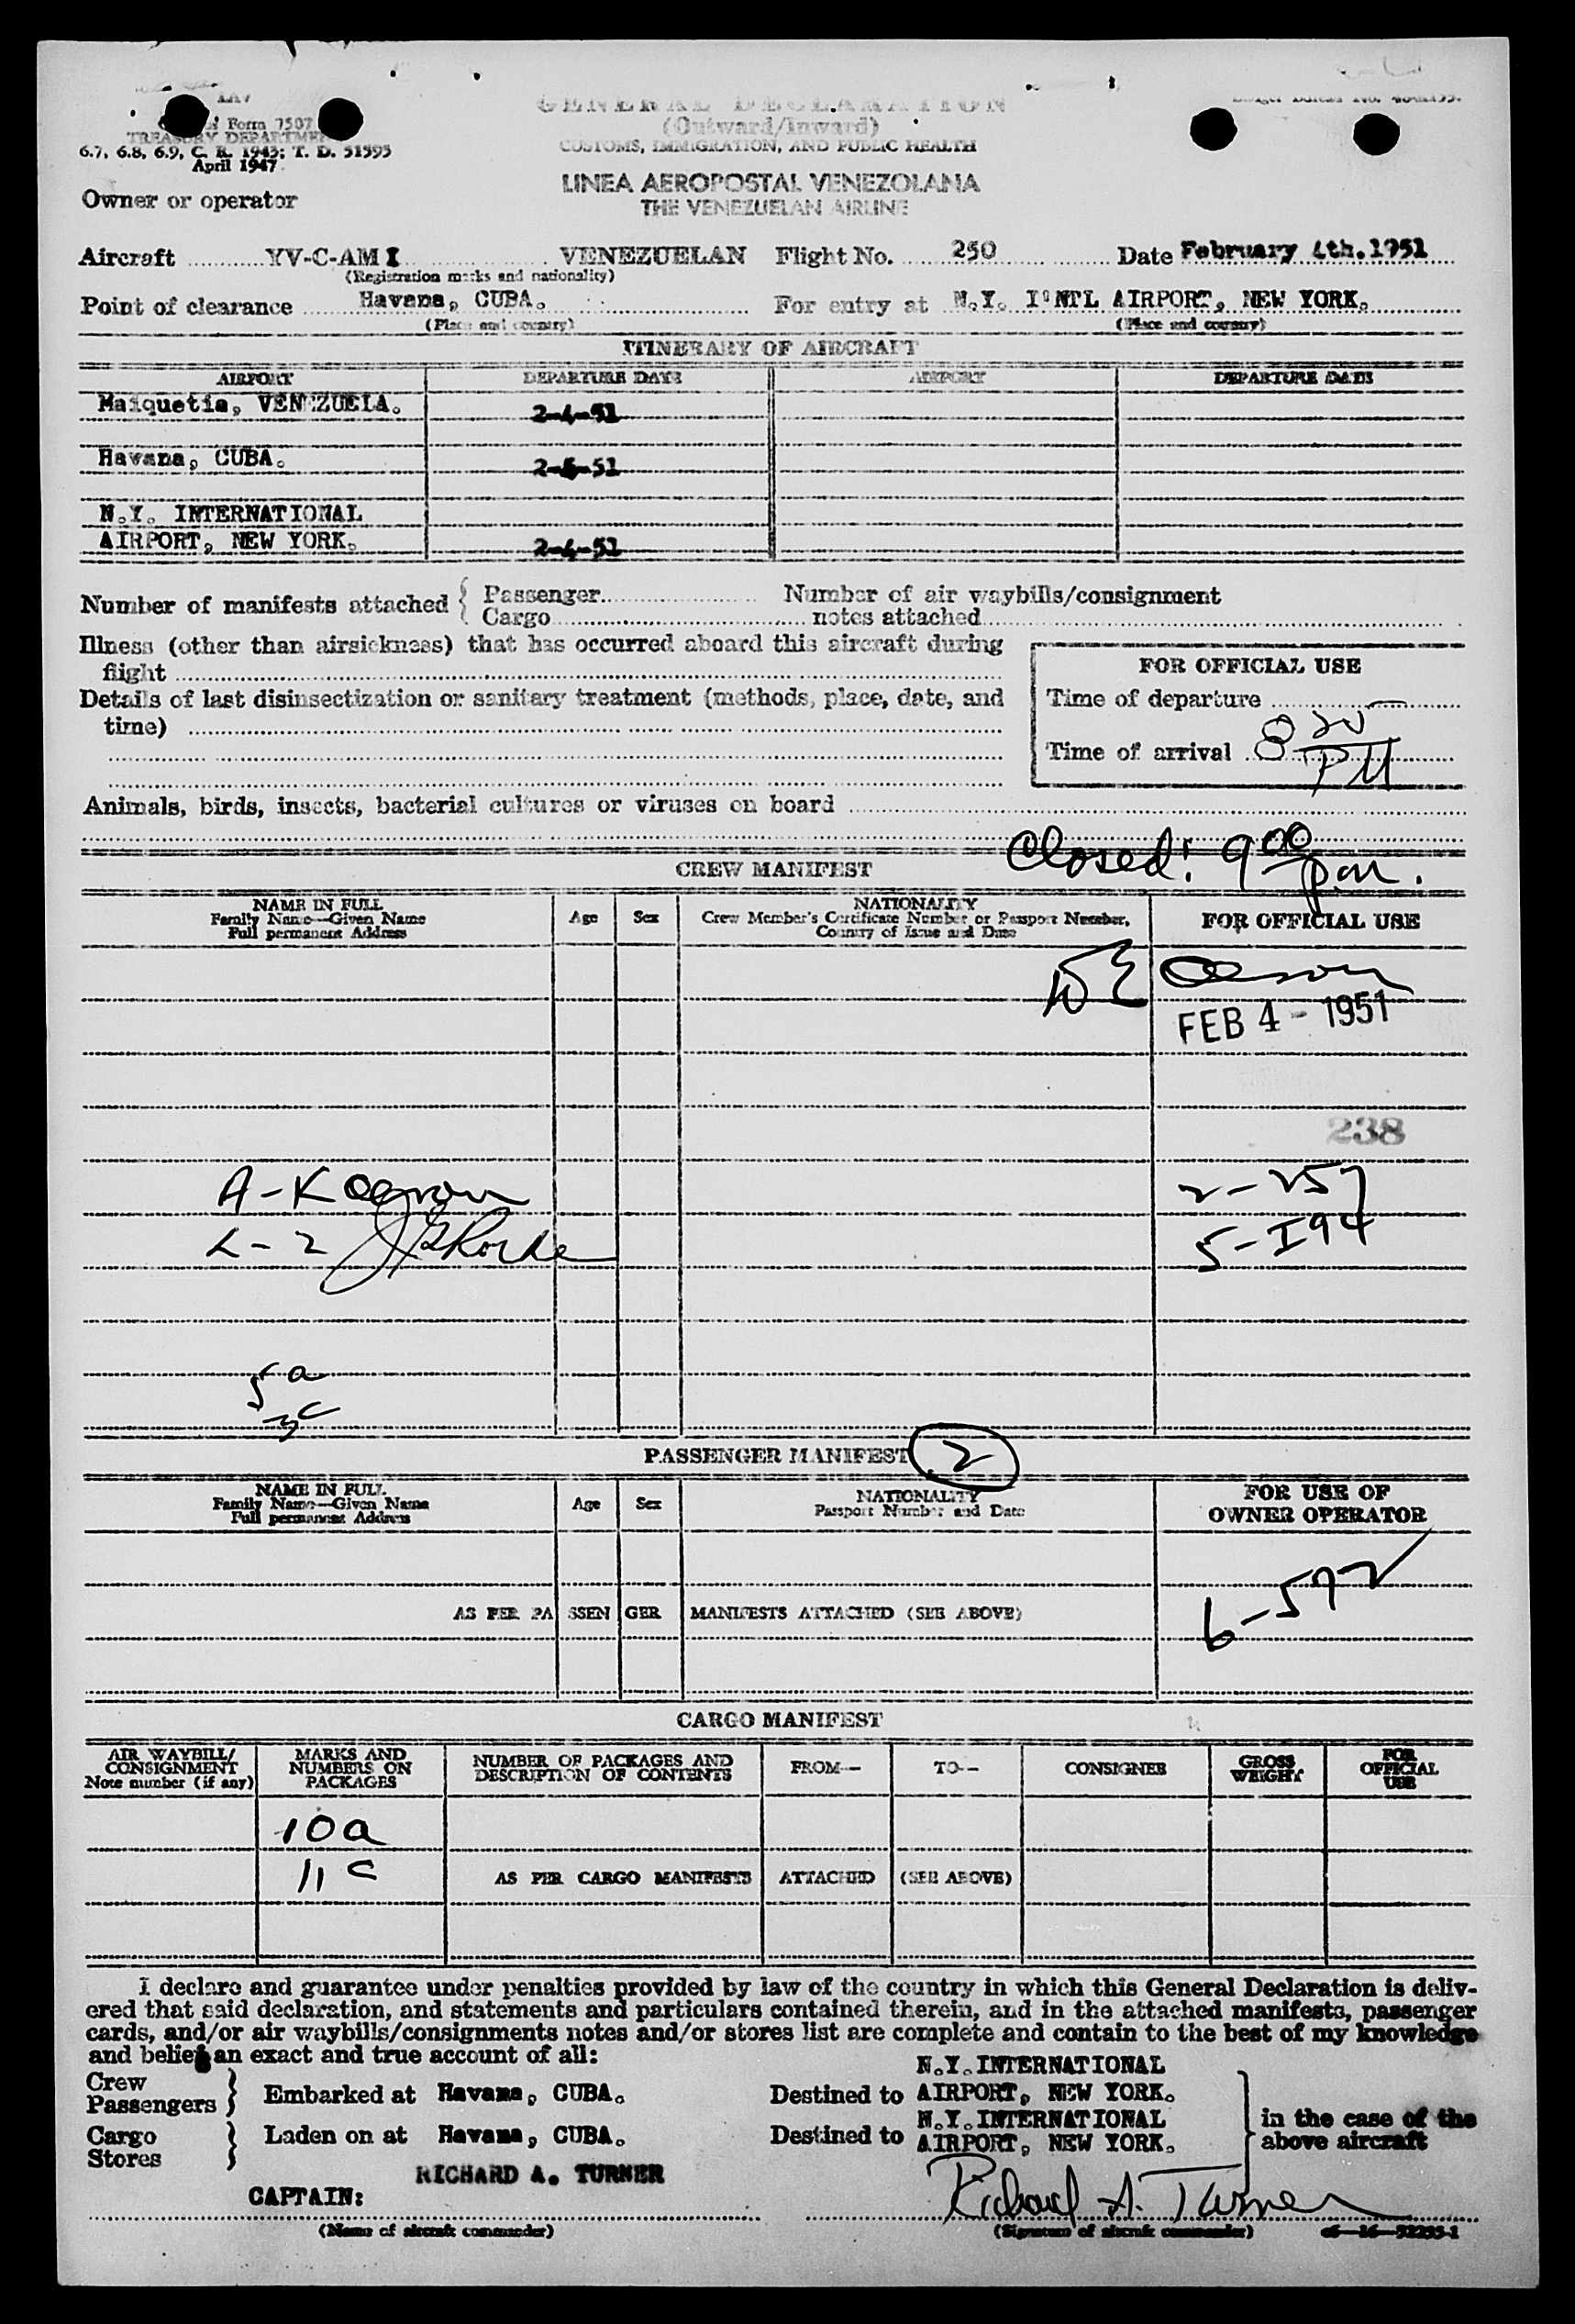 LAV
Form 7507
TREASURY DEPARTMENT
6.7, 6.8, 6.9, C. R. 1943; T. D. 51595
April 1947
GENERAL DECLARATION
(Outward/Inward)
CUSTOMS, IMMIGRATION, AND PUBLIC HEALTH
LINEA AEROPOSTAL VENEZOLANA
THE VENEZUELAN AIRLINE
Owner or operator
Aircraft YV-C-AMI VENEZUELAN Flight No. 250 Date February 4th.1951
(Registration marks and nationality)
Point of clearance Havana, CUBA. For entry at N.Y. I'NT'L AIRPORT, NEW YORK.
(Place and country) (Place and country)
ITINERARY OF AIRCRAFT
AIRPORT DEPARTURE DATE AIRPORT DEPARTURE DATE
Maiquetia, VENEZUELA. 2-4-51
Havana, CUBA. 2-4-51
N.Y. INTERNATIONAL
AIRPORT, NEW YORK. 2-4-51
Number of manifests attached { Passenger Number of air waybills/consignment
Cargo notes attached
Illness (other than airsickness) that has occurred aboard this aircraft during
flight
Details of last disinsectization or sanitary treatment (methods, place, date, and
time)
FOR OFFICIAL USE
Time of departure
Time of arrival 8 20 PM
Animals, birds, insects, bacterial cultures or viruses on board
Closed: 9 00 p.m.
CREW MANIFEST
NAME IN FULL
Family Name—Given Name
Full permanent Address
Age Sex
NATIONALITY
Crew Member's Certificate Number or Passport Number,
Country of Issue and Date
FOR OFFICIAL USE
WE Olson
FEB 4 - 1951
238
A-K 2-257
L-2 5-I94
5 a
3 c
PASSENGER MANIFEST 2
NAME IN FULL
Family Name—Given Name
Full permanent Address
Age Sex
NATIONALITY
Passport Number and Date
FOR USE OF
OWNER OPERATOR
6-592
AS PER PASSENGER MANIFESTS ATTACHED (SEE ABOVE)
CARGO MANIFEST
AIR WAYBILL/
CONSIGNMENT
Note number (if any)
MARKS AND
NUMBERS ON
PACKAGES
NUMBER OF PACKAGES AND
DESCRIPTION OF CONTENTS
FROM— TO— CONSIGNEE
GROSS
WEIGHT
FOR
OFFICIAL
USE
10a
11 c AS PER CARGO MANIFESTS ATTACHED (SEE ABOVE)
I declare and guarantee under penalties provided by law of the country in which this General Declaration is deliv-
ered that said declaration, and statements and particulars contained therein, and in the attached manifests, passenger
cards, and/or air waybills/consignments notes and/or stores list are complete and contain to the best of my knowledge
and belief an exact and true account of all:
N.Y.INTERNATIONAL
Crew
Passengers } Embarked at Havana, CUBA. Destined to AIRPORT, NEW YORK.
N.Y.INTERNATIONAL
Cargo
Stores } Laden on at Havana, CUBA. Destined to AIRPORT, NEW YORK.
in the case of the
above aircraft
RICHARD A. TURNER
CAPTAIN: Richard A. Turner
(Name of aircraft commander) (Signature of aircraft commander)